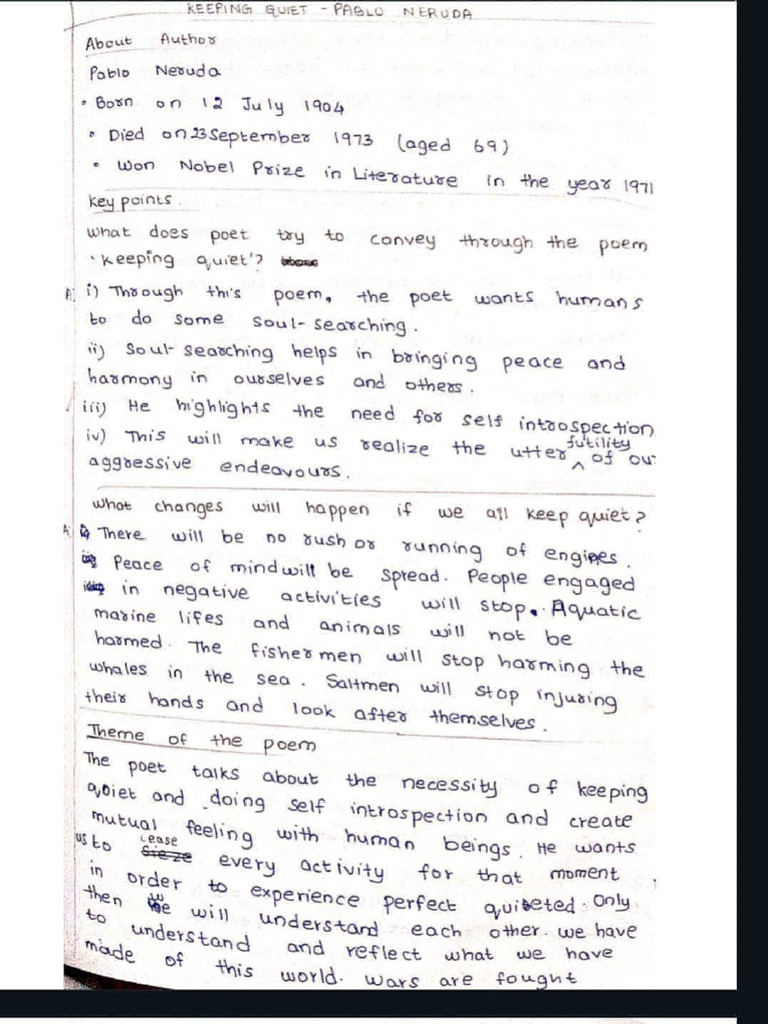 KEEPING QUIET - PABLO NERUDA
About Author
Pablo Neruda
• Born on 12 July 1904
• Died on 23 September 1973 (aged 69)
• Won Nobel Prize in Literature in the year 1971
key points.
what does poet try to convey through the poem
'keeping quiet'?
A: i) Through this poem, the poet wants humans
to do some soul-searching.
ii) Soul-searching helps in bringing peace and
harmony in ourselves and others.
iii) He highlights the need for self introspection
iv) This will make us realize the utter futility of ou
aggressive endeavours.
what changes will happen if we all keep quiet?
A. There will be no rush or running of engines.
Peace of mind will be spread. People engaged
in negative activities will stop. Aquatic
marine lifes and animals will not be
harmed. The fishermen will stop harming the
whales in the sea. Saltmen will stop injuring
their hands and look after themselves.
Theme of the poem
The poet talks about the necessity of keeping
quiet and doing self introspection and create
mutual feeling with human beings. He wants
us to cease every activity for that moment
in order to experience perfect quiteted. Only
then we will understand each other. we have
to understand and reflect what we have
made of this world. wars are fought